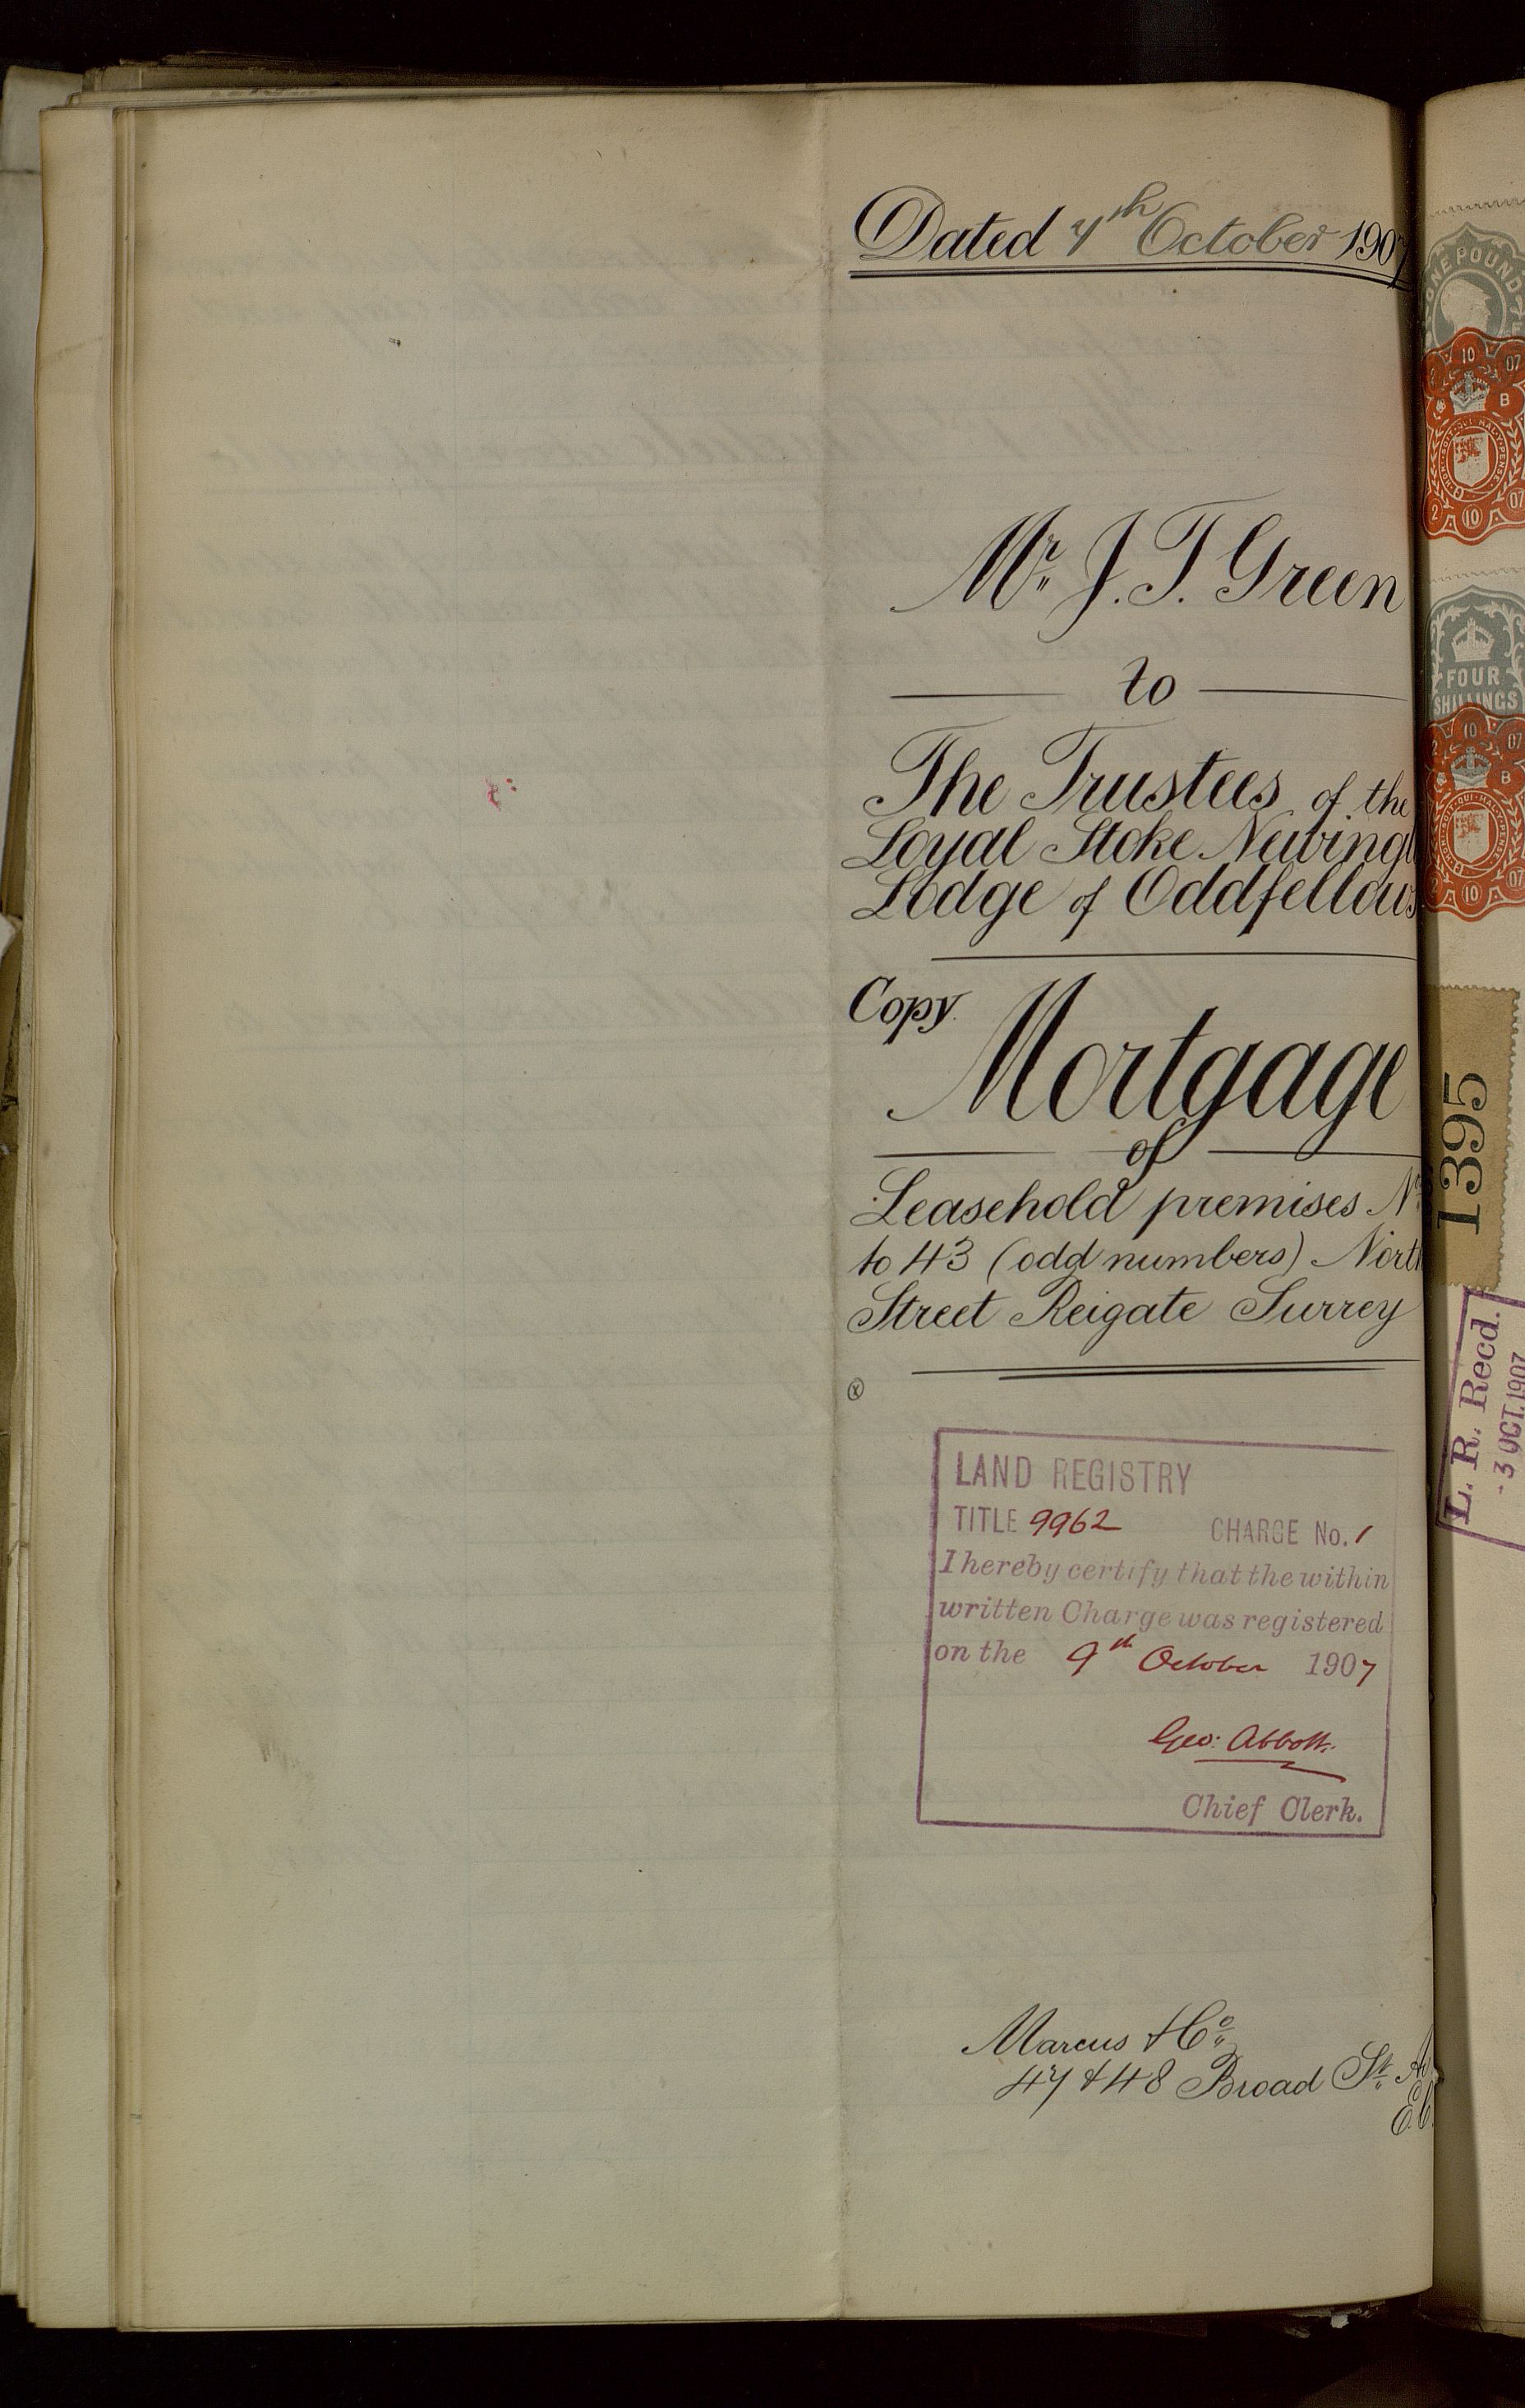 Dated 7th October 1907
Mr. J. T. Green
to
The Trustees of the
Loyal Stoke Newingt
Lodge of Oddfellows
Copy
Mortgage
of
Leasehold premises No
to 43 (odd numbers) North
Street Reigate Surrey
LAND REGISTRY
TITLE 9962 CHARGE No. 1
I hereby certify that the within
written Charge was registered
on the 9th October 1907
Geo: Abbott.
Chief Clerk.
Marcus & Co.
47 & 48 Broad St. A
E.C.
ONE POUND
10 07
B
HONI·SOIT·QUI·MAL·Y·PENSE
2 10 07
FOUR
SHILLINGS
2 10 07
B
HONI·SOIT·QUI·MAL·Y·PENSE
2 10 07
1395
L. R. Recd.
- 3 OCT. 1907